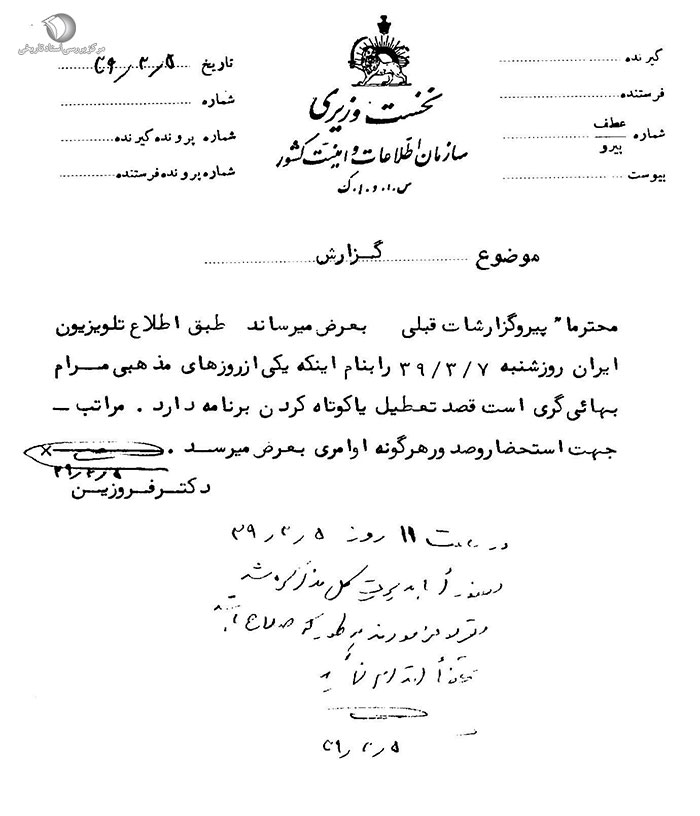 مرکز بررسی اسناد تاریخی
گیرنده
فرستنده
شماره عطف
پیرو
پیوست
نخست وزیری
سازمان اطلاعات و امنیت کشور
س.ا.و.ا.ک
تاریخ ۳۹/۳/۵
شماره
شماره پرونده گیرنده
شماره پرونده فرستنده
موضوع گزارش
محترما" پیروگزارشات قبلی بعرض میرساند طبق اطلاع تلویزیون
ایران روزشنبه ۳۹/۳/۷ رابنام اینکه یکی ازروزهای مذهبی مرام
بهائی گری است قصد تعطیل یاکوتاه کردن برنامه دارد . مراتب –
جهت استحضار وصد ورهرگونه اوامری بعرض میرسد .
۳۹/۳/۵
دکترفروزین
در ساعت ۱۱ روز ۳۹/۳/۵
با مدیریت کل مذاکره شد
بطوریکه صلاح
اقدام
۳۹/۳/۵